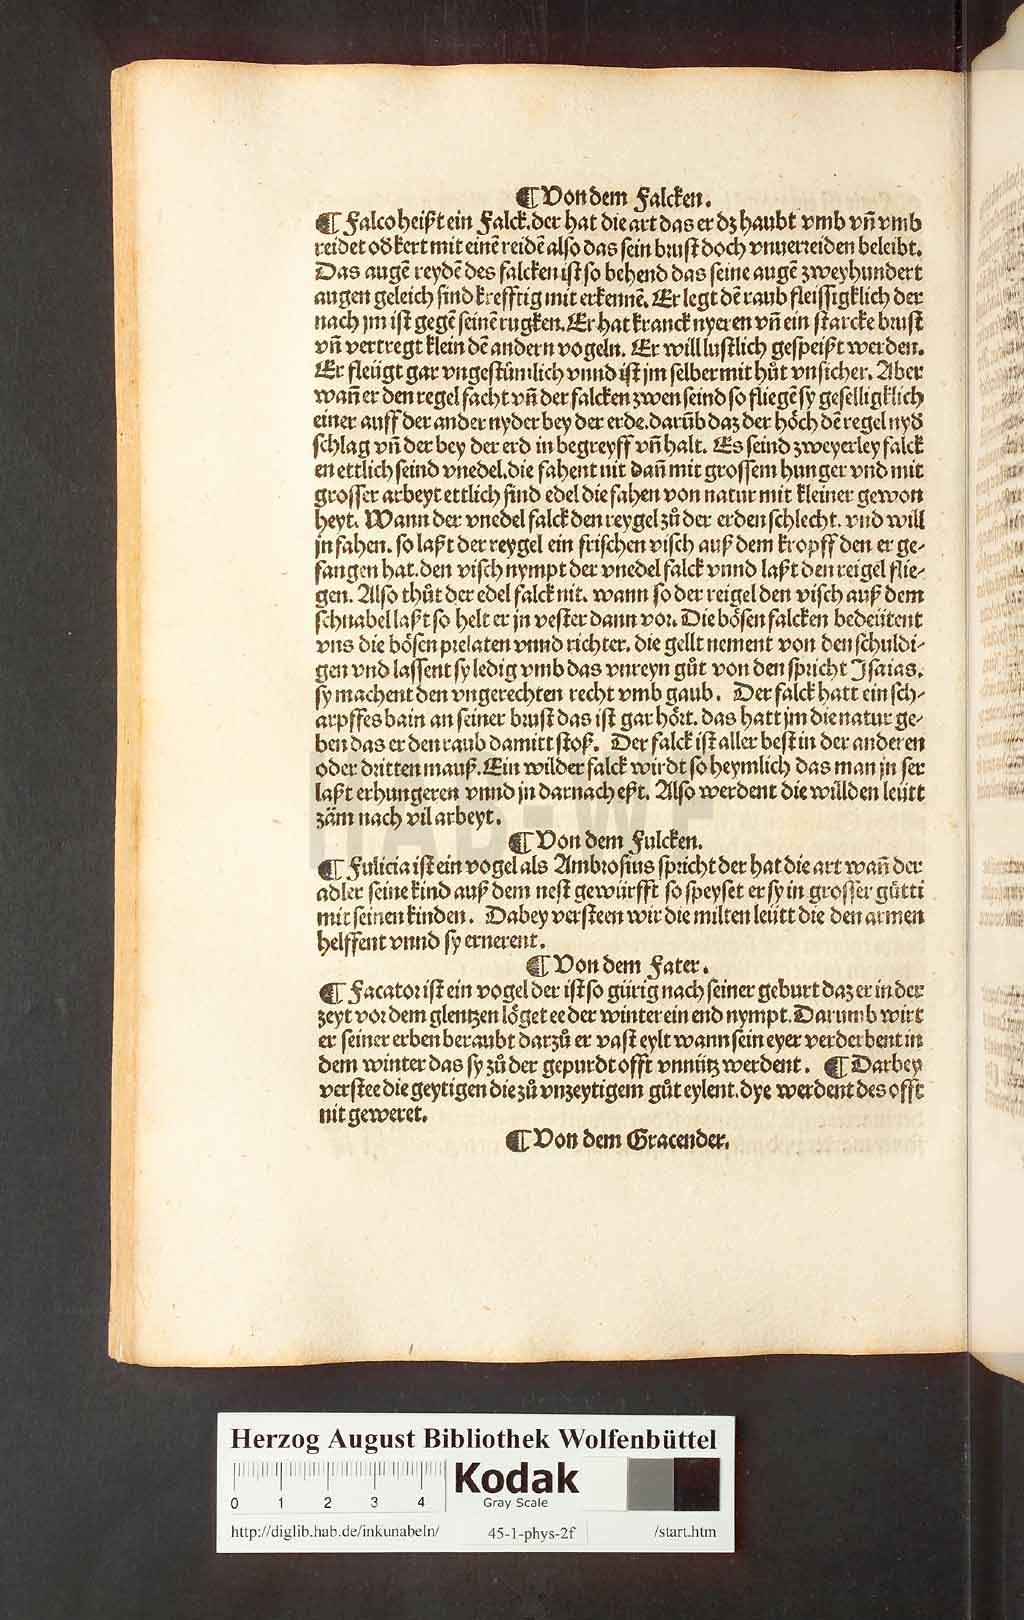 ¶ Von dem Falcken.
¶ Falco heißt ein Falck. der hat die art das er dz haubt vmb vn̄ vmb
reidet od̕ kert mit einē reidē also das sein brust doch vnuerreiden beleibt.
Das augē reydē des falcken ist so behend das seine augē zweyhundert
augen geleich sind krefftig mit erkennē. Er legt dē raub fleissigklich der
nach jm ist gegē seinē rugken. Er hat kranck nyeren vn̄ ein starcke brust
vn̄ vertregt klein dē andern vogeln. Er will lustlich gespeißt werden.
Er fleügt gar vngestümlich vnnd ist jm selber mit hůt vnsicher. Aber
wan̄ er den regel facht vn̄ der falcken zwen seind so fliegē sy geselligklich
einer auff der ander nyder bey der erde. darūb daz der höch dē regel nyd̕
schlag vn̄ der bey der erd in begreyff vn̄ halt. Es seind zweyerley falck
en ettlich seind vnedel. die fahent nit dan̄ mit grossem hunger vnd mit
grosser arbeyt ettlich sind edel die fahen von natur mit kleiner gewon
heyt. Wann der vnedel falck den reygel zů der erden schlecht. vnd will
jn fahen. so laßt der reygel ein frischen visch auß dem kropff den er ge-
fangen hat. den visch nympt der vnedel falck vnnd laßt den reigel flie-
gen. Also thůt der edel falck nit. wann so der reigel den visch auß dem
schnabel laßt so helt er jn vester dann vor. Die bösen falcken bedeütent
vns die bösen prelaten vnnd richter. die gellt nement von den schuldi-
gen vnd lassent sy ledig vmb das vnreyn gůt von den spricht Isaias.
sy machent den vngerechten recht vmb gaub. Der falck hatt ein sch-
arpffes bain an seiner brust das ist gar hört. das hatt jm die natur ge-
ben das er den raub damitt stoß. Der falck ist aller best in der anderen
oder dritten mauß. Ein wilder falck wirdt so heymlich das man jn ser
laßt erhungeren vnnd jn darnach eßt. Also werdent die willden leütt
zäm nach vil arbeyt.
¶ Von dem Fulcken.
¶ Fulicia ist ein vogel als Ambrosius spricht der hat die art wan̄ der
adler seine kind auß dem nest gewürfft so speyset er sy in grosser gütti
mit seinen kinden. Dabey versteen wir die milten leütt die den armen
helffent vnnd sy ernerent.
¶ Von dem Fater.
¶ Facator ist ein vogel der ist so gürig nach seiner geburt daz er in der
zeyt vor dem glentzen löget ee der winter ein end nympt. Darumb wirt
er seiner erben beraubt darzů er vast eylt wann sein eyer verderbent in
dem winter das sy zů der gepurdt offt vnnütz werdent. ¶ Darbey
verstee die geytigen die zů vnzeytigem gůt eylent. dye werdent des offt
nit geweret.
¶ Von dem Gracender.
HAB-WF
Herzog August Bibliothek Wolfenbüttel
0 1 2 3 4
Kodak
Gray Scale
http://diglib.hab.de/inkunabeln/ 45-1-phys-2f /start.htm